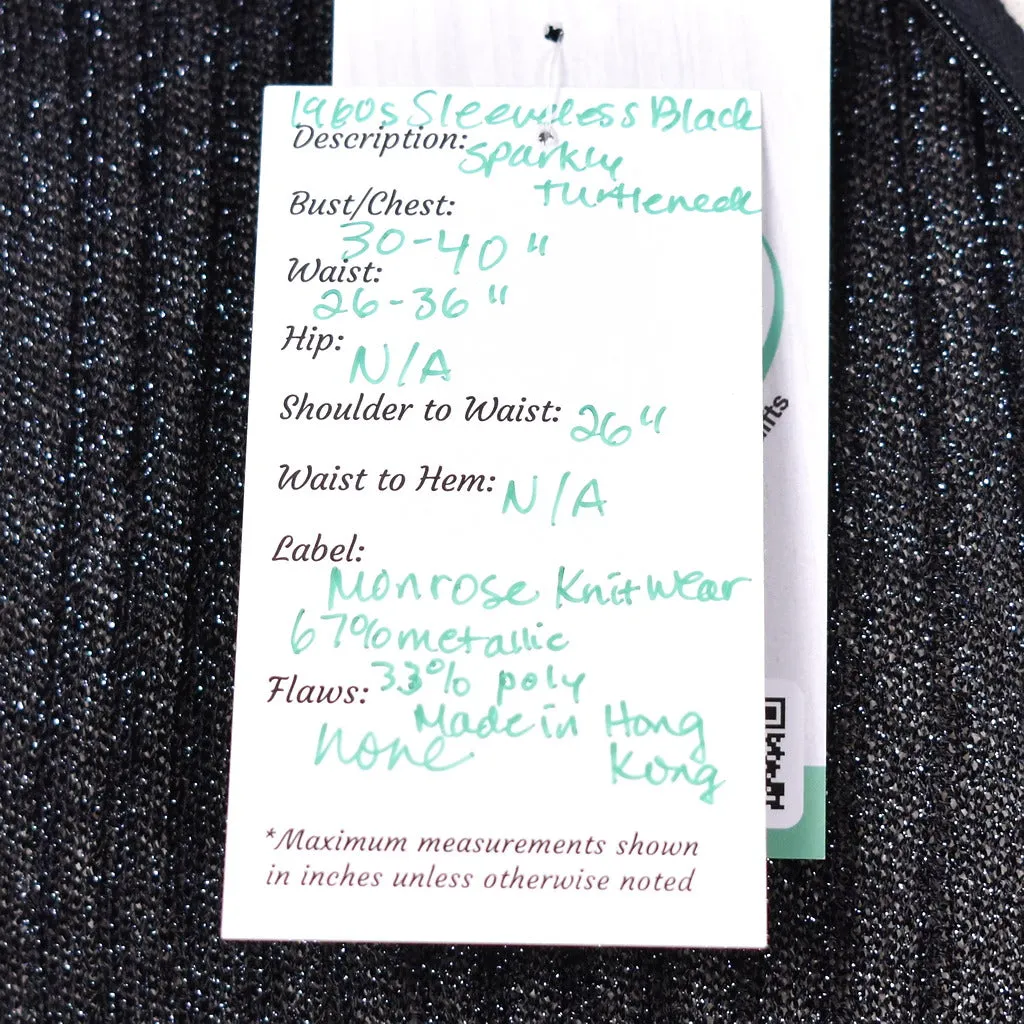 1960s Sleeveless Black
Description: Sparkly
turtleneck
Bust/Chest:
30-40"
Waist:
26-36"
Hip:
N/A
Shoulder to Waist: 26"
Waist to Hem: N/A
Label:
Monrose Knitwear
67% metallic
33% poly
Flaws:
Made in Hong
none
Kong
*Maximum measurements shown
in inches unless otherwise noted